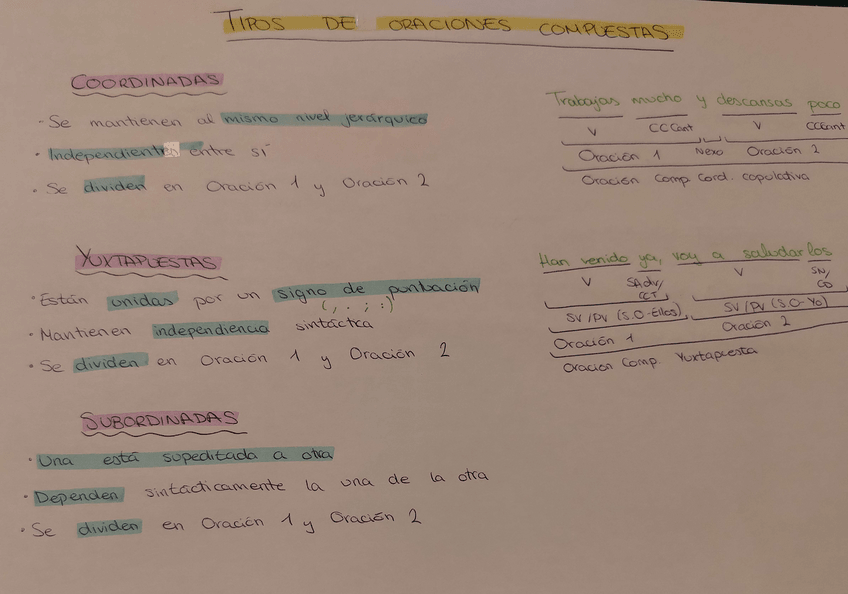 TIPOS DE ORACIONES COMPUESTAS
COORDINADAS
- Se mantienen al mismo nivel jerárquico
· Independientes entre sí
· Se dividen en Oración 1 y Oración 2
Trabajas mucho y descansas poco
V CCCant V CCCant
Oración 1 Nexo Oración 2
Oración Comp Cord. copulativa
YUXTAPUESTAS
· Están unidas por un signo de puntuación
(, . ; :)
· Mantienen independencia sintáctica
· Se dividen en Oración 1 y Oración 2
Han venido ya, voy a saludarlos
V SAdv/ V SN/
CCT CD
SV/PV (S.O-Ellos) SV/PV (S.O-Yo)
Oración 1 Oración 2
Oracion Comp. Yuxtapuesta
SUBORDINADAS
· Una está supeditada a otra
· Dependen sintácticamente la una de la otra
· Se dividen en Oración 1 y Oración 2